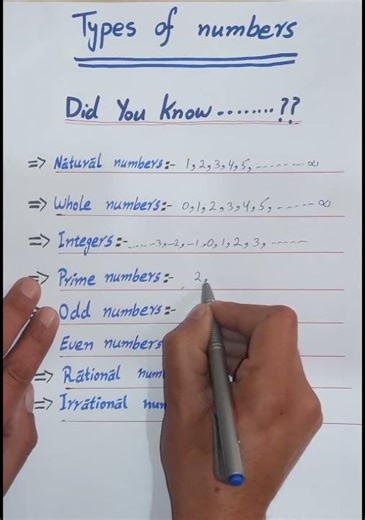 Types of numbers
Did You Know........??
=> Natural numbers:- 1,2,3,4,5,------- ∞
=> Whole numbers:- 0,1,2,3,4,5,------ ∞
=> Integers:- ....-3,-2,-1,0,1,2,3,------
=> Prime numbers:- 2,
Odd numbers:-
Even numbers
=> Rational num
=> Irrational num